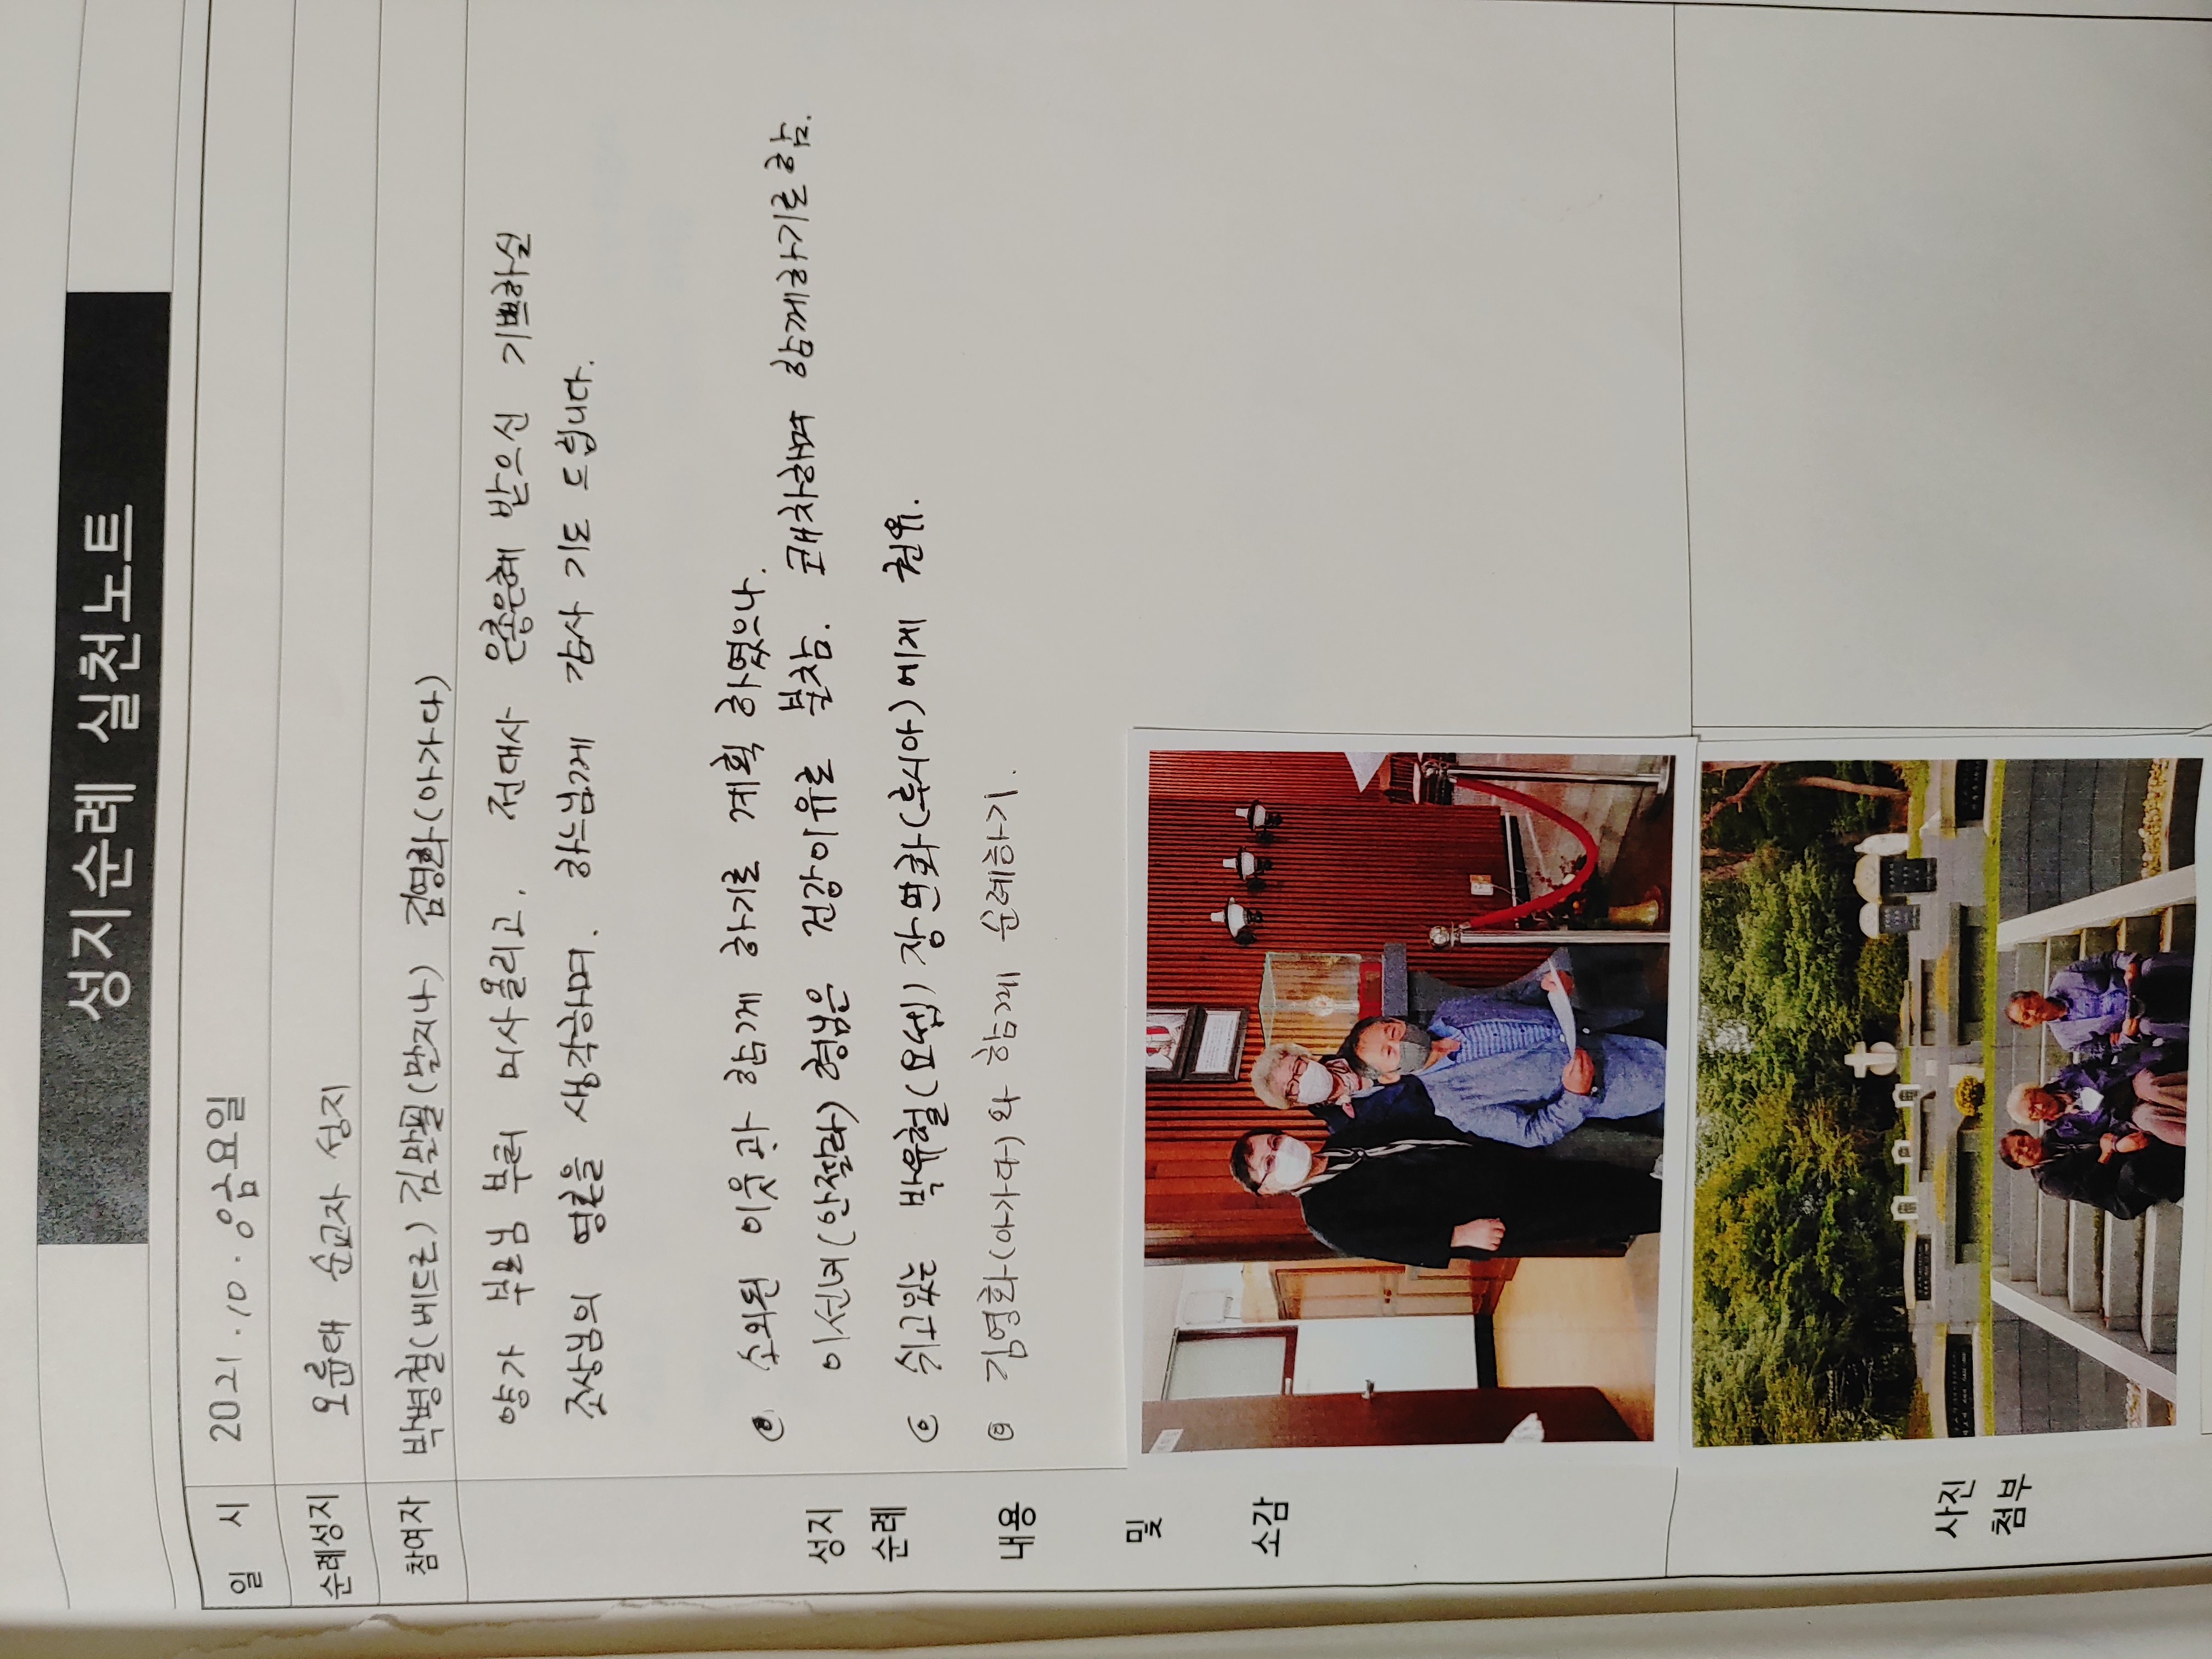 성지순례 실천노트
일 시 2021. 10. 8 금요일
순례성지 오륜대 순교자 성지
참여자 박병철(베드로) 김말필(말지나) 김영화(아가다)
양가 부모님 부터 미사올리고, 전대사 은총은혜 받으신 기쁘하실
조상님의 영혼을 생각하며. 하느님께 감사 기도 드립니다.
성지
순례
내용
및
소감
소외된 이웃과 함께 하기로 계획 하였으나.
이선녀(안젤라) 형님은 건강이유로 불참. 교체차하며 함께하기로 함.
쉬고있는 박유철(요셉) 장면화(루시아)에게 권유.
김영화(아가다)와 함께 순례하기.
사진
첨부